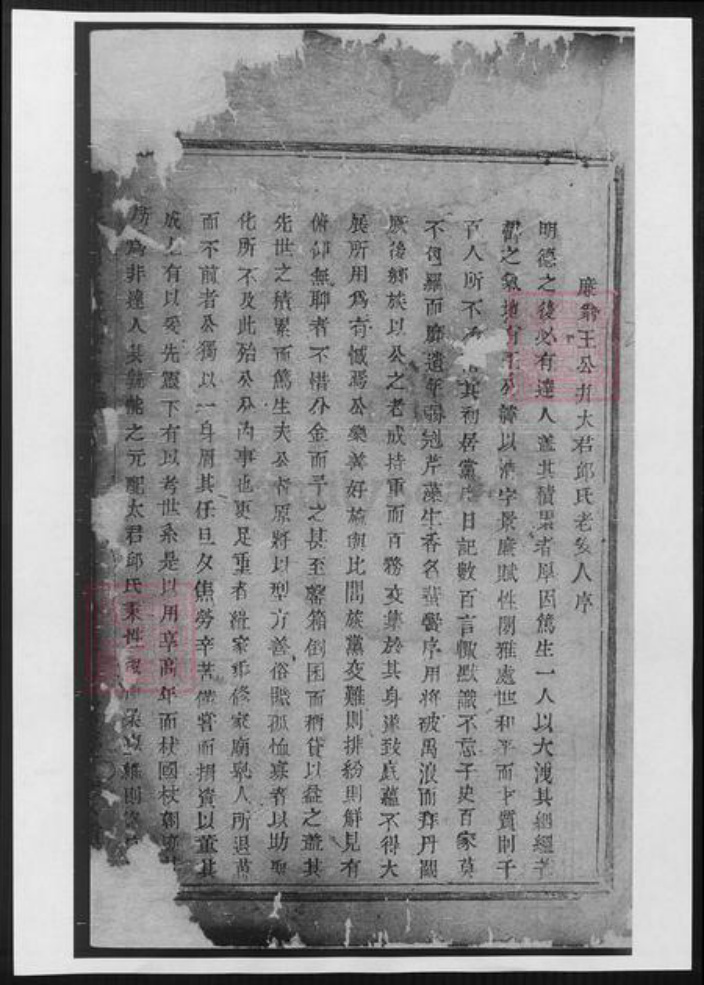 廉翁王公并太君邱氏老安人序
明德之後必有達人蓋其積累者厚因篤生一人以大洩其絪縕
鬱之氣地有王公諱以清字景廉賦性閒雅處世和平而才質則千
百人所不 其初居黨庠日記數百言輒默識不忘子史百家莫
不包羅而靡遺年弱冠芹藻生香名蜚黌序用將被禹浪而拜丹闕
厥後鄉族以公之老成持重而百務交集於其身遂致底蘊不得大
展所用為有憾焉公樂善好施與比閭族黨交難則排紛則解見有
俯仰無聊者不惜分金而予之甚至罄箱倒囷而稱貸以益之蓋其
先世之積累而篤生夫公者原將以型方善俗賑孤恤寡者以助聖
化所不及此殆公分內事也更足重者維家乘修家廟眾人所退萬
而不前者公獨以一身肩其任旦夕焦勞辛苦備嘗而捐資以董其
成上有以妥先靈下有以考世系是以用享高年而杖國杖朝
所為非達人其孰能之元配太君邱氏秉性 則